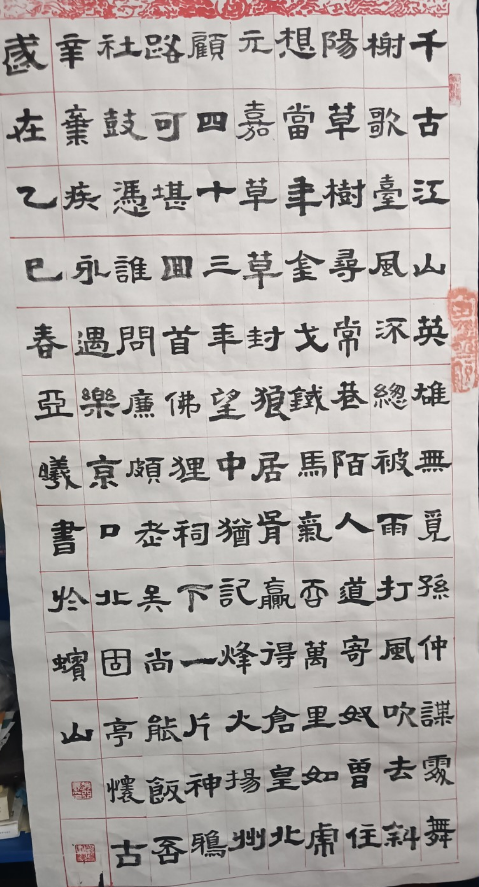 千古江山英雄無覓孫仲謀處舞
榭歌臺風流總被雨打風吹去斜
陽草樹尋常巷陌人道寄奴曾住
想當年金戈鐵馬氣吞萬里如虎
元嘉草草封狼居胥贏得倉皇北
顧四十三年望中猶記烽火揚州
路可堪囬首佛狸祠下一片神鴉
社鼓憑誰問廉頗老矣尚能飯否
辛棄疾永遇樂京口北固亭懷古
歲在乙巳春亞曦書於蠙山